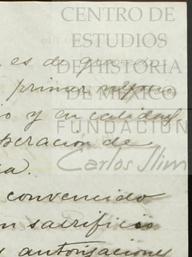 CENTRO DE
ESTUDIOS
DE HISTORIA
DE MÉXICO
FUNDACIÓN
Carlos Slim
es de que
primer
y en calidad
peracion de
a.
convencido
n sacrificio
autorizaciones